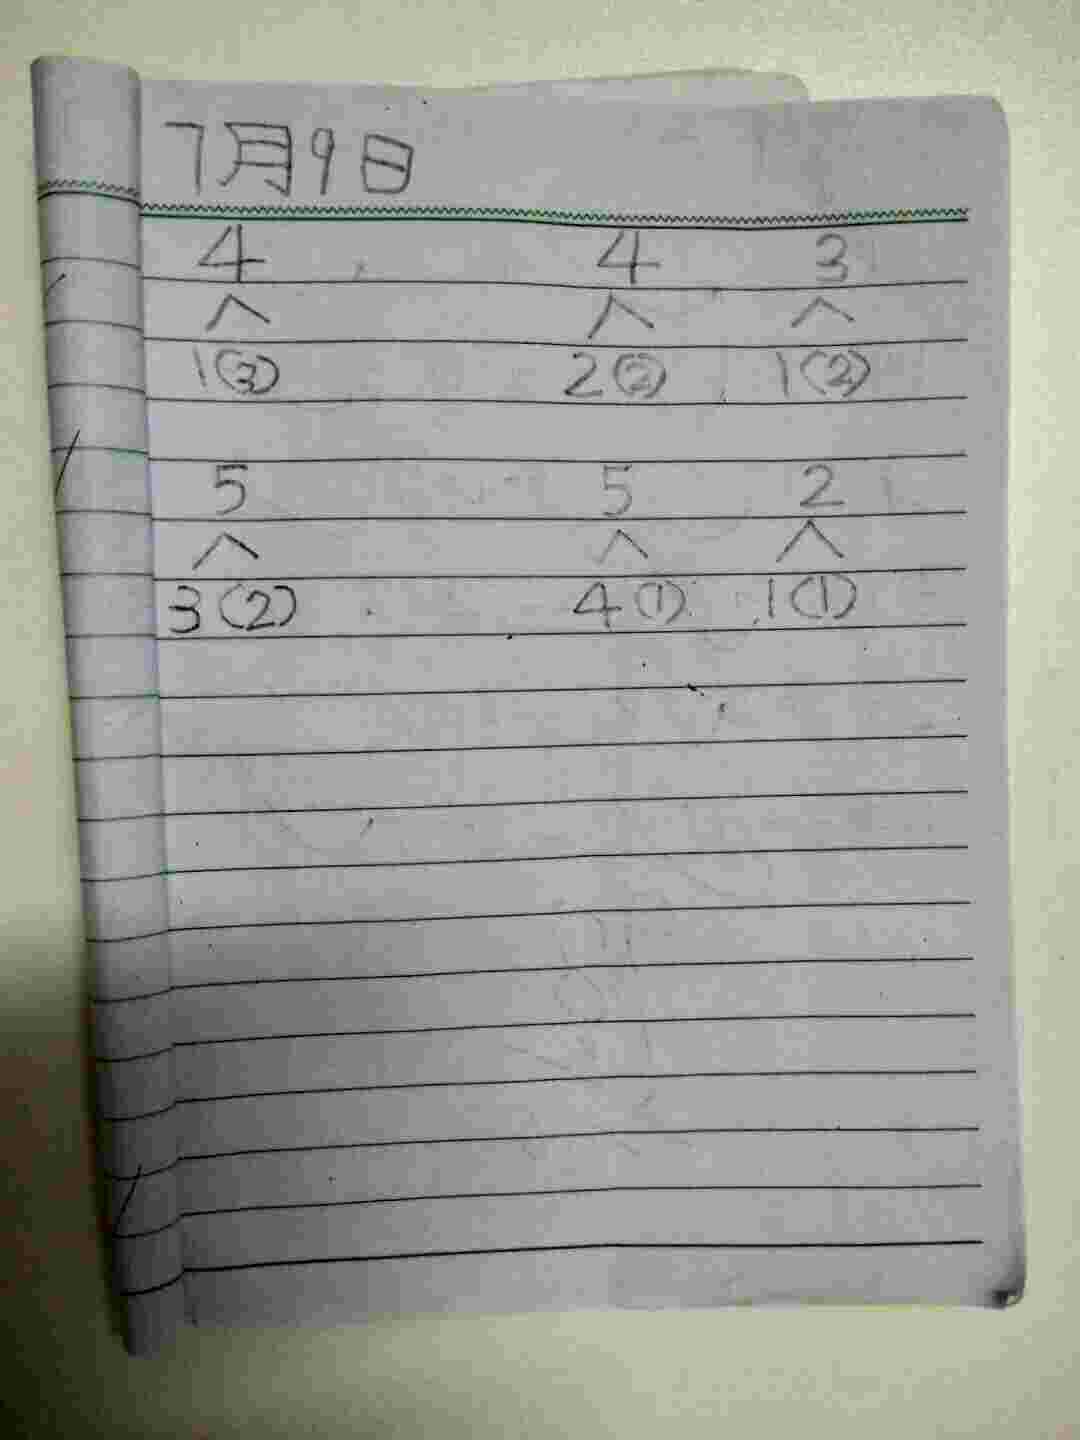 7月9日
4 4 3
1(3) 2(2) 1(2)
5 5 2
3(2) 4(1) 1(1)